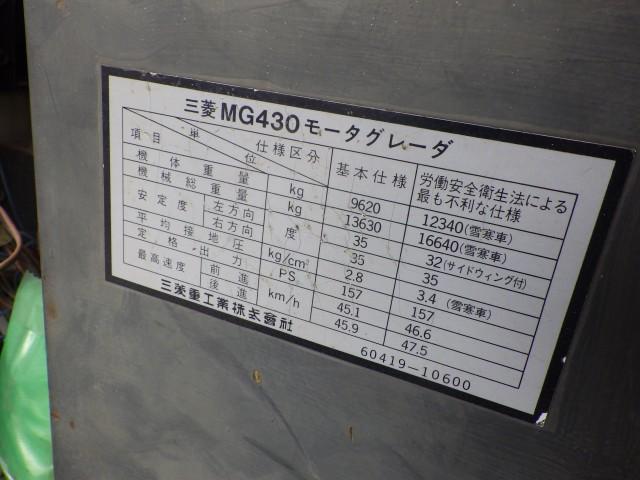 三菱MG430モータグレーダ
項目 単位 仕様区分 基本仕様 労働安全衛生法による最も不利な仕様
機体重量 kg 9620 12340(雪寒車)
機械総重量 kg 13630 16640(雪寒車)
安定度 左方向 度 35 32(サイドウィング付)
右方向 35 35
平均接地圧 kg/cm² 2.8 3.4(雪寒車)
定格出力 PS 157 157
最高速度 前進 km/h 45.1 46.6
後進 45.9 47.5
三菱重工業株式會社
60419-10600